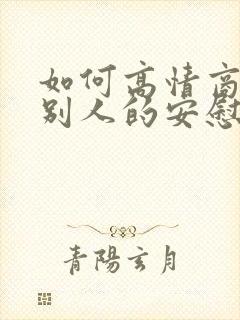 如何高情商
别人的安慰
青陽玄月